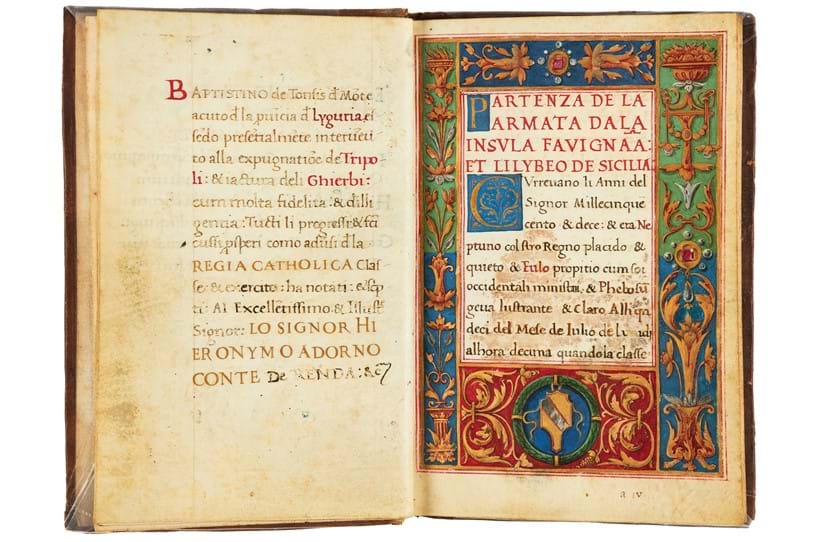 BAPTISTINO de Tonsis d Mōte
acuto d la p̄uīcia d lyguria: eſ
ſedo preſētialmēte interueu
to alla expugnatiōe de Tripo
li: & iactura deli Gherbi:
cum molta fidelita: & dilli
gencia: Tucti li progreſſi: & ſci
cuſſi ꝓſperi como aduiſi d la
REGIA CATHOLICA Claſ
ſe: & exercito: ha notati: &
ti: Al Excellētiſſimo & Illuſt
Signor: LO SIGNOR HI
ERONYMO ADORNO
CONTE De RENDA: &c
PARTENZA DE LA
ARMATA DA LA
INSVLA FAVIGNAA:
ET LILYBEO DE SICILIA
CVrreuano li Anni del
Signor Millecinque
cento & dece: & era Ne
ptuno col ſtro Regno placido &
quieto & Eulo propitio cum ſoi
occidentali miniſtri, & Phebo ſu
geua luſtrante & Claro Alli qn
deci del Meſe de Iulio de
alhora decuna quando la claſſe
a iv